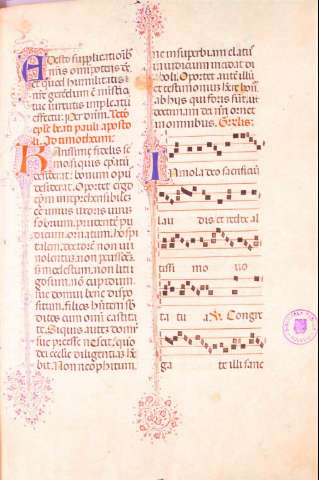 Adesto supplicatiõib
nr̃is omnipotens ds̃
et quod humilitatis
nr̃e gerendum ẽ mistĩo
tue virtutis impleatur
effectu: Per dñm. Lc̃tio
epl̃e beati pauli aposto
li. Ad timotheum.
Karissime fidelis ser
mo si quis ep̃atũ
desiderat: bonum opus
desiderat. Oportet ergo
ep̃m irreprehensibilẽ
eẽ unius uxoris virum
sobrium, prudentẽ pu
dicum. ornatum, hospi
talem, doctorẽ non vi
nolentuz, non pcussorẽ
si modestum, non liti
gosum, nõ cupidum
sue domui bene ppo
situm. filios hñtem sb
ditos cum omĩ castita
te. Si quis autez domui
sue preesse nescit: quõ
dei ecclie diligentiaz hẽ
bit. Non neophitum.
ne in superbiam elatus
in iudicium incidat di
aboli. Oportet autẽ illũ
et testimoniuz hẽre bonũ
ab hiis qui foris sũt. ut
non in omnibus. Grale.
Immola deo sacrificiũ
lau dis et redde al
tissi mo vo
ta tu a V. Congre
ga te illi sanc